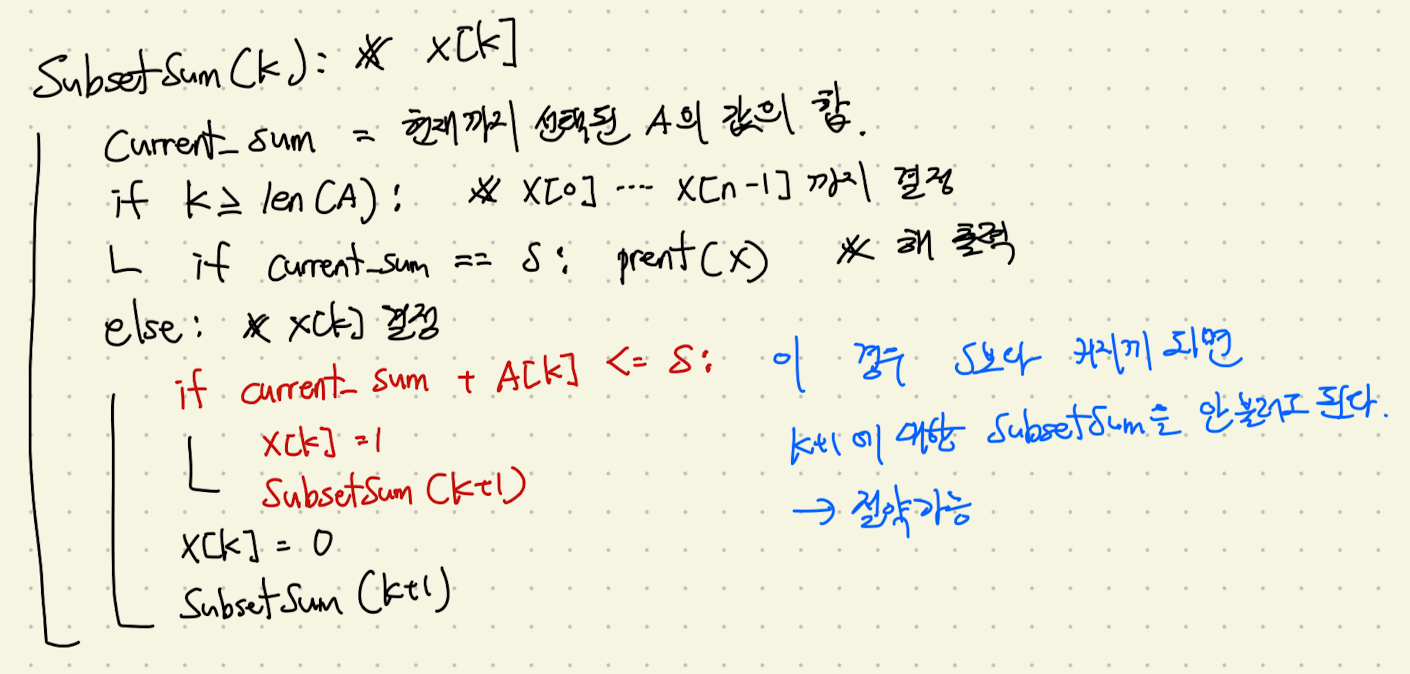 SubsetSum(k): ※ x[k]
Current_sum = 현재까지 선택된 A의 값의 합.
if k ≥ len(A): ※ x[0] ···· x[n-1] 까지 결정
if current_sum == S: prent(x) ※ 해 출력
else: ※ x[k] 결정
if current_sum + A[k] <= S: 이 경우 S보다 커지게 되면
x[k] = 1 k+1에 대한 SubsetSum을 안 불러도 된다.
SubsetSum(k+1) → 절약가능
x[k] = 0
SubsetSum(k+1)